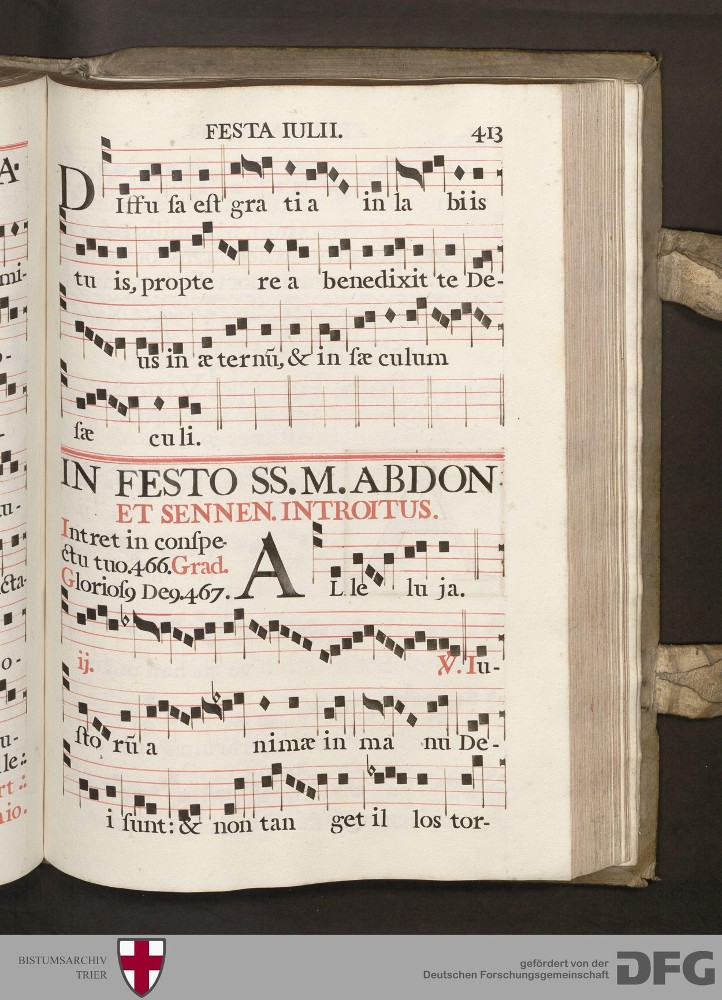 FESTA IULII. 413
DIffu sa est gra ti a in la bi is
tu is, propte re a benedixit te De-
us in æ ternũ, & in sæ culum
sæ cu li.
IN FESTO SS. M. ABDON
ET SENNEN. INTROITUS.
Intret in conspe-
ctu tuo. 466. Grad.
Gloriosꝯ Deꝯ. 467. AL le lu ja.
ij. ℣. Iu-
sto rũ a nimæ in ma nu De-
i sunt: & non tan get il los tor-
A.
mi-
o-
u-
cta-
o-
u-
le:
rt:
nio.
BISTUMSARCHIV
TRIER
gefördert von der
Deutschen Forschungsgemeinschaft
DFG